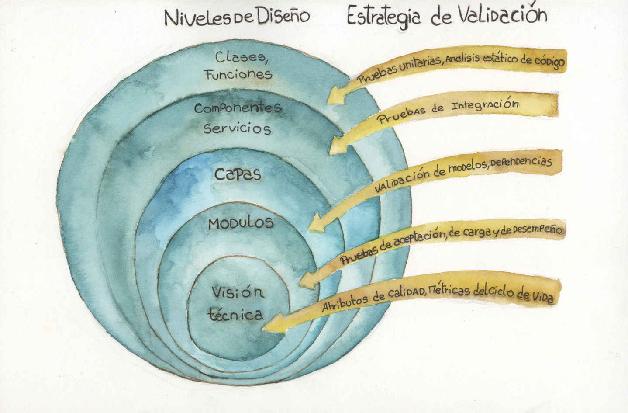 Niveles de Diseño
Estrategia de Validación
Clases,
Funciones
Pruebas unitarias, Análisis estático de código
Componentes
Servicios
Pruebas de Integración
Capas
Validación de modelos, Dependencias
MODULOS
Pruebas de aceptación, de carga y de Desempeño
Visión
técnica
Atributos de Calidad, Métricas del Ciclo de Vida